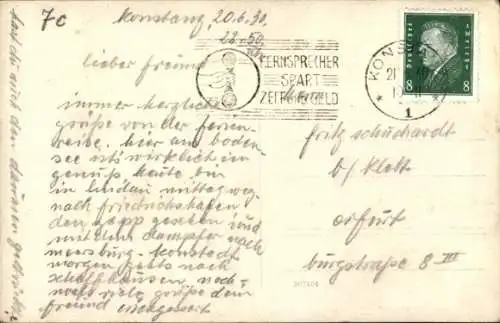 7c
Konstanz, 20.6.30.
22.50
lieber freund
immer herzliche
grüße von der ferien-
reise. hier am boden-
see ists wirklich ein
genuß. heute bin
in lindau mittag weg
nach friedrichshafen
den zepp gesehen und
mit dem dampfer nach
meersburg - Konstadt
morgen gehts nach
schaffhausen. noch-
mals viele grüße dein
freund
FERNSPRECHER
SPART
ZEIT UND GELD
KONST
1
Deutsches Reich
8 8
herrn
fritz schuchardt
b/ Klett
erfurt
burgstraße 8 III